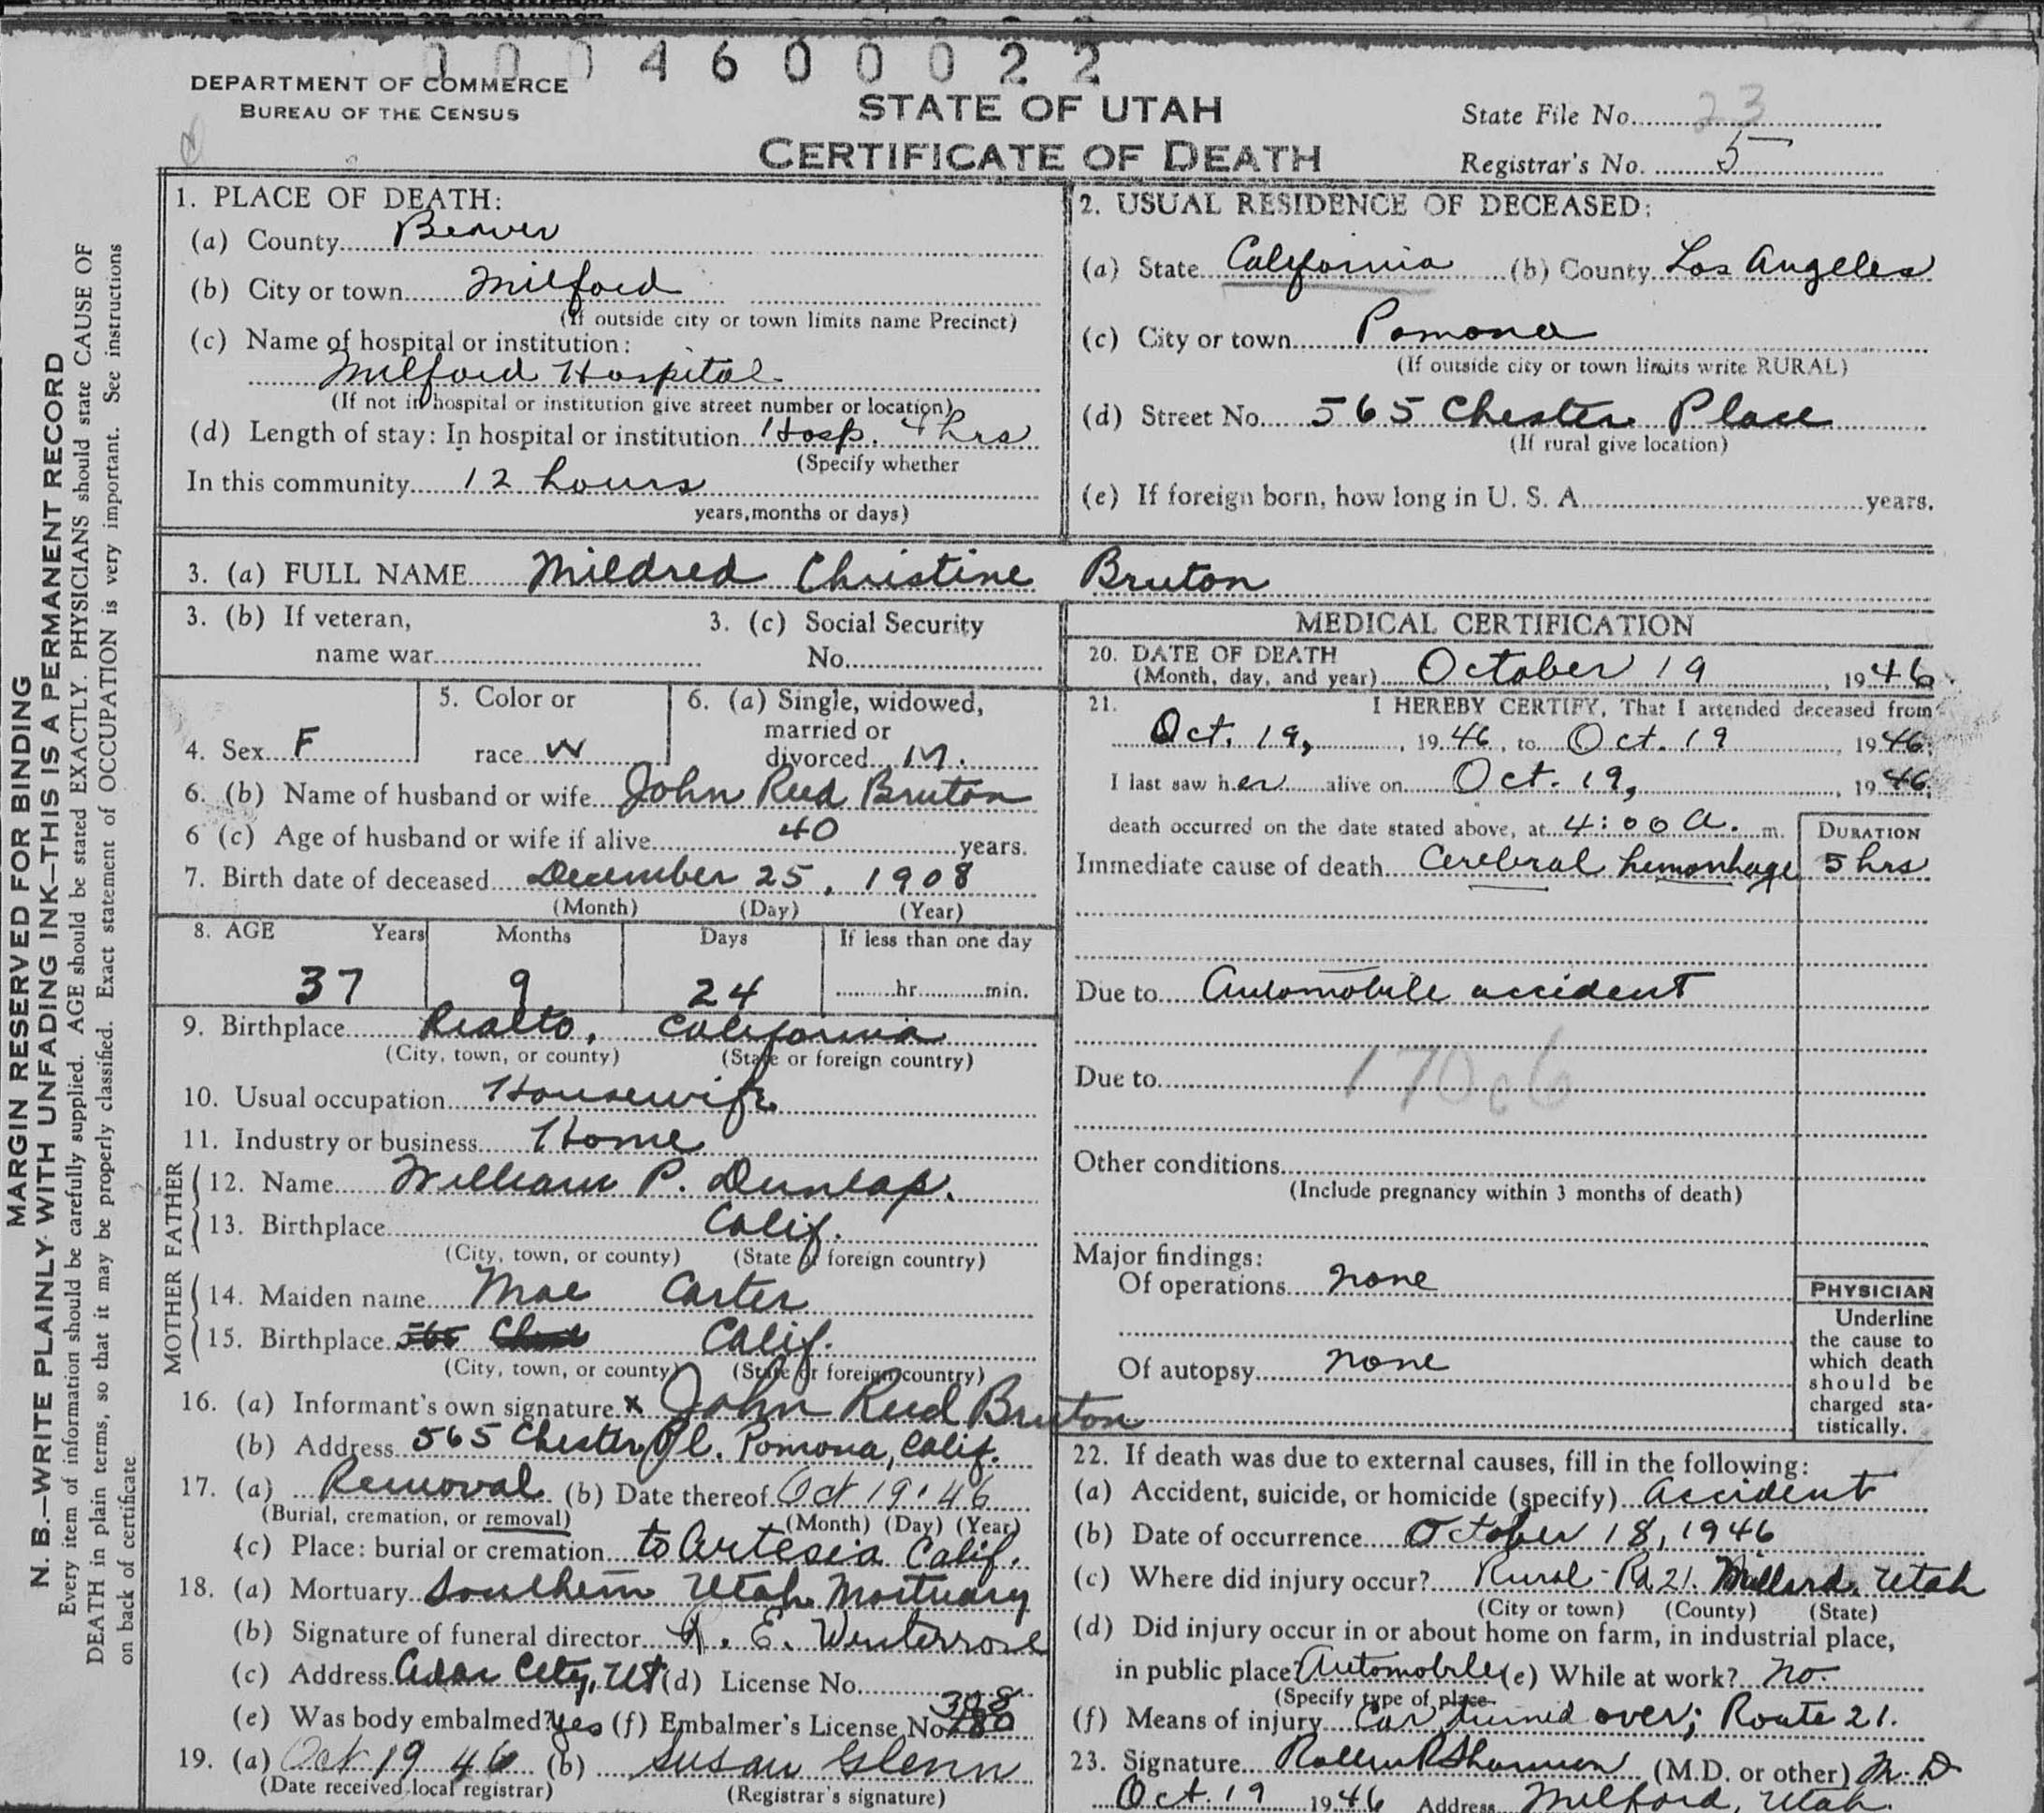 0004600022
DEPARTMENT OF COMMERCE
BUREAU OF THE CENSUS
STATE OF UTAH
CERTIFICATE OF DEATH
State File No. 23
Registrar's No. 5
MARGIN RESERVED FOR BINDING
N. B.—WRITE PLAINLY WITH UNFADING INK—THIS IS A PERMANENT RECORD
Every item of information should be carefully supplied. AGE should be stated EXACTLY. PHYSICIANS should state CAUSE OF
DEATH in plain terms, so that it may be properly classified. Exact statement of OCCUPATION is very important. See instructions
on back of certificate.
1. PLACE OF DEATH:
(a) County Beaver
(b) City or town Milford
(If outside city or town limits name Precinct)
(c) Name of hospital or institution:
Milford Hospital
(If not in hospital or institution give street number or location)
(d) Length of stay: In hospital or institution Hosp. 4 hrs
(Specify whether
In this community 12 hours
years, months or days)
2. USUAL RESIDENCE OF DECEASED:
(a) State California (b) County Los Angeles
(c) City or town Pomona
(If outside city or town limits write RURAL)
(d) Street No. 565 Chester Place
(If rural give location)
(e) If foreign born, how long in U. S. A. years.
3. (a) FULL NAME Mildred Christine Bruton
3. (b) If veteran,
name war
3. (c) Social Security
No.
4. Sex F
5. Color or
race W
6. (a) Single, widowed,
married or
divorced M.
6. (b) Name of husband or wife John Reed Bruton
6 (c) Age of husband or wife if alive 40 years.
7. Birth date of deceased December 25, 1908
(Month) (Day) (Year)
8. AGE Years Months Days If less than one day
37 9 24 hr. min.
9. Birthplace Rialto, California
(City, town, or county) (State or foreign country)
10. Usual occupation Housewife
11. Industry or business Home
FATHER
12. Name William P. Dunlap.
13. Birthplace Calif.
(City, town, or county) (State or foreign country)
MOTHER
14. Maiden name Mae Carter
15. Birthplace 565 Calif.
(City, town, or county) (State or foreign country)
16. (a) Informant's own signature x John Reed Bruton
(b) Address 565 Chester Pl. Pomona, Calif.
17. (a) Removal (b) Date thereof Oct 19 · 46
(Burial, cremation, or removal) (Month) (Day) (Year)
(c) Place: burial or cremation to Artesia Calif.
18. (a) Mortuary Southern Utah Mortuary
(b) Signature of funeral director E. Winterrose
(c) Address Cedar City, Ut (d) License No.
(e) Was body embalmed? Yes (f) Embalmer's License No.
19. (a) Oct 19 46 (b) Susan Glenn
(Date received local registrar) (Registrar's signature)
MEDICAL CERTIFICATION
20. DATE OF DEATH
(Month, day, and year) October 19, 1946
21. I HEREBY CERTIFY, That I attended deceased from
Oct. 19, 1946, to Oct. 19, 1946;
I last saw her alive on Oct. 19, 1946;
death occurred on the date stated above, at 4:00 A. m.
DURATION
Immediate cause of death Cerebral hemorrhage 5 hrs
Due to Automobile accident
Due to
Other conditions
(Include pregnancy within 3 months of death)
Major findings:
Of operations none
Of autopsy none
PHYSICIAN
Underline
the cause to
which death
should be
charged sta-
tistically.
22. If death was due to external causes, fill in the following:
(a) Accident, suicide, or homicide (specify) Accident
(b) Date of occurrence October 18, 1946
(c) Where did injury occur? Rural - Rt 21. Millard, Utah
(City or town) (County) (State)
(d) Did injury occur in or about home on farm, in industrial place,
in public place? Automobile (e) While at work? no.
(Specify type of place
(f) Means of injury Car turned over; Route 21.
23. Signature (M.D. or other) M.D
Oct. 19 1946 Address Milford, Utah